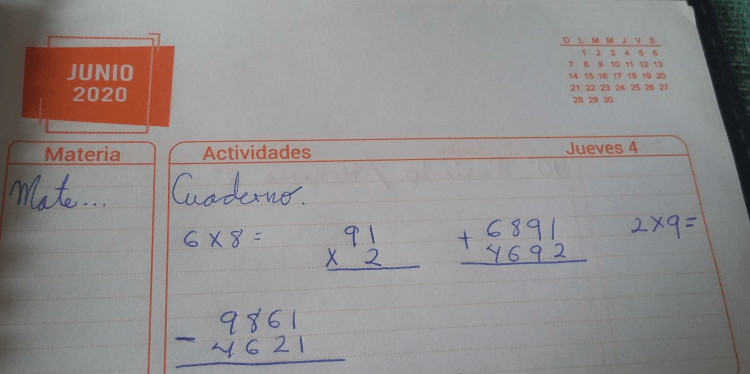 JUNIO
2020
D L M M J V S
1 2 3 4 5 6
7 8 9 10 11 12 13
14 15 16 17 18 19 20
21 22 23 24 25 26 27
28 29 30
Materia
Actividades
Jueves 4
Mate...
Cuaderno.
6 X 8 =
91
X 2
+ 6891
4692
2 X 9 =
9861
- 4621